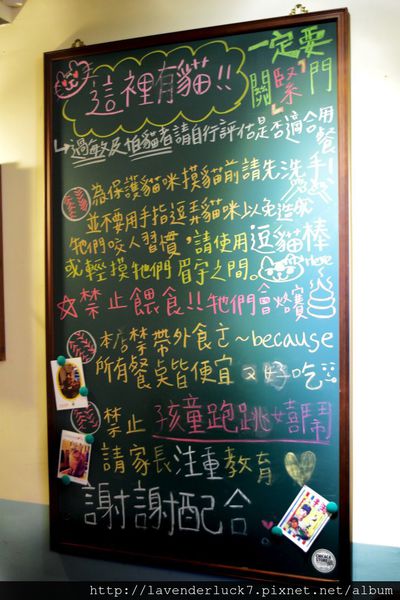 這裡有貓!!
一定要
關緊門
過敏及怕貓者請自行評估是否適合用餐
為保護貓咪摸貓前請先洗手!
並不要用手指逗弄貓咪以免造成
牠們咬人習慣,請使用逗貓棒
或輕摸牠們眉宇之間。
Here
☆禁止餵食!!牠們會烙賽
本店禁帶外食ㄛ~because
所有餐點皆便宜又好吃
禁止 孩童跑跳嬉鬧
請家長注重教育
謝謝配合
http://lavenderluck7.pixnet.net/album